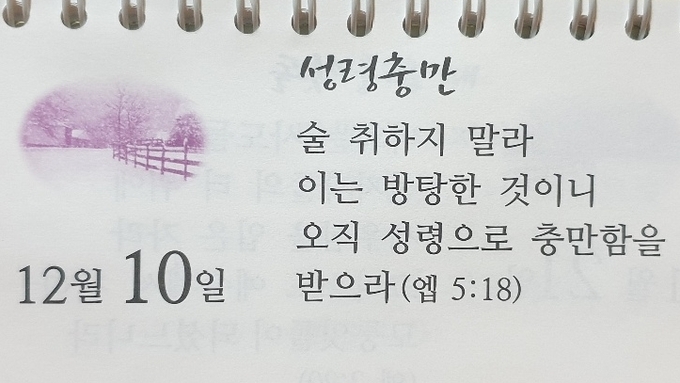 성령충만
술 취하지 말라
이는 방탕한 것이니
오직 성령으로 충만함을
받으라(엡 5:18)
12월 10일